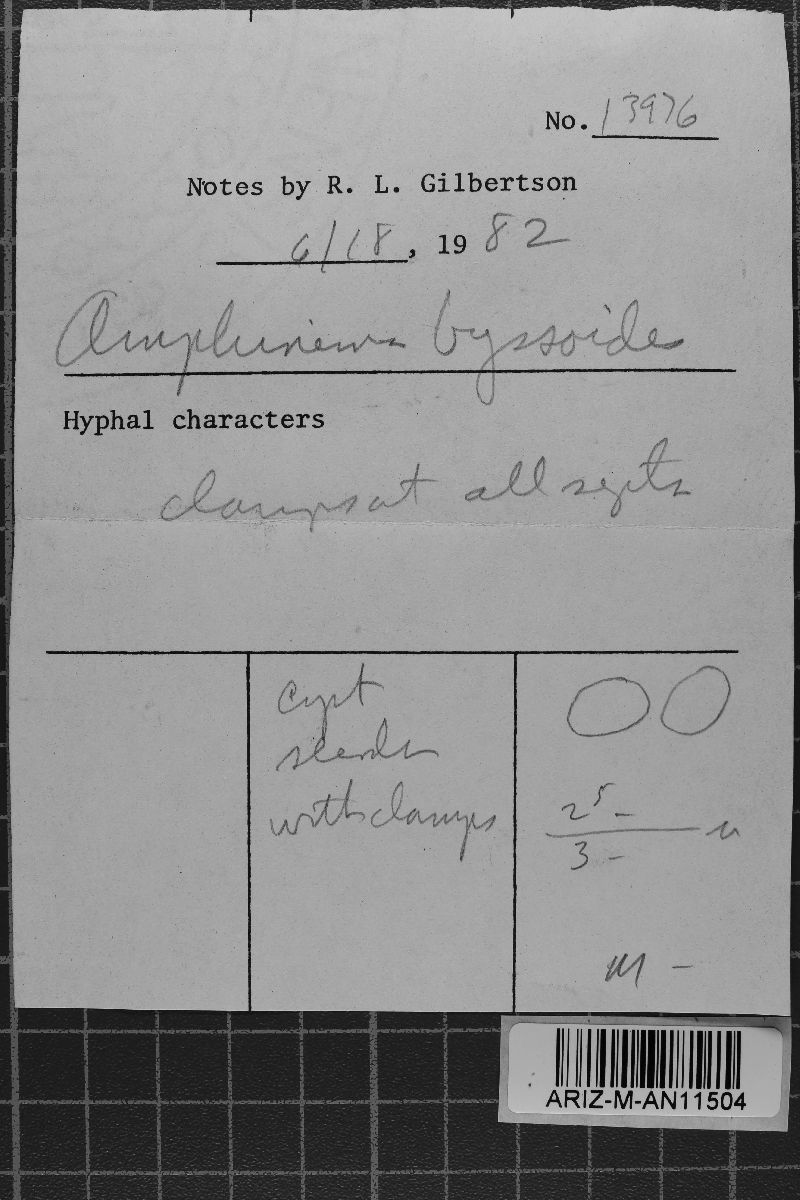 No. 13976
Notes by R. L. Gilbertson
6/18, 19 82
Amphinema byssoides
Hyphal characters
clamps at all septa
cyst
slender
with clamps
2 5 -
3 -
u
M -
ARIZ-M-AN11504